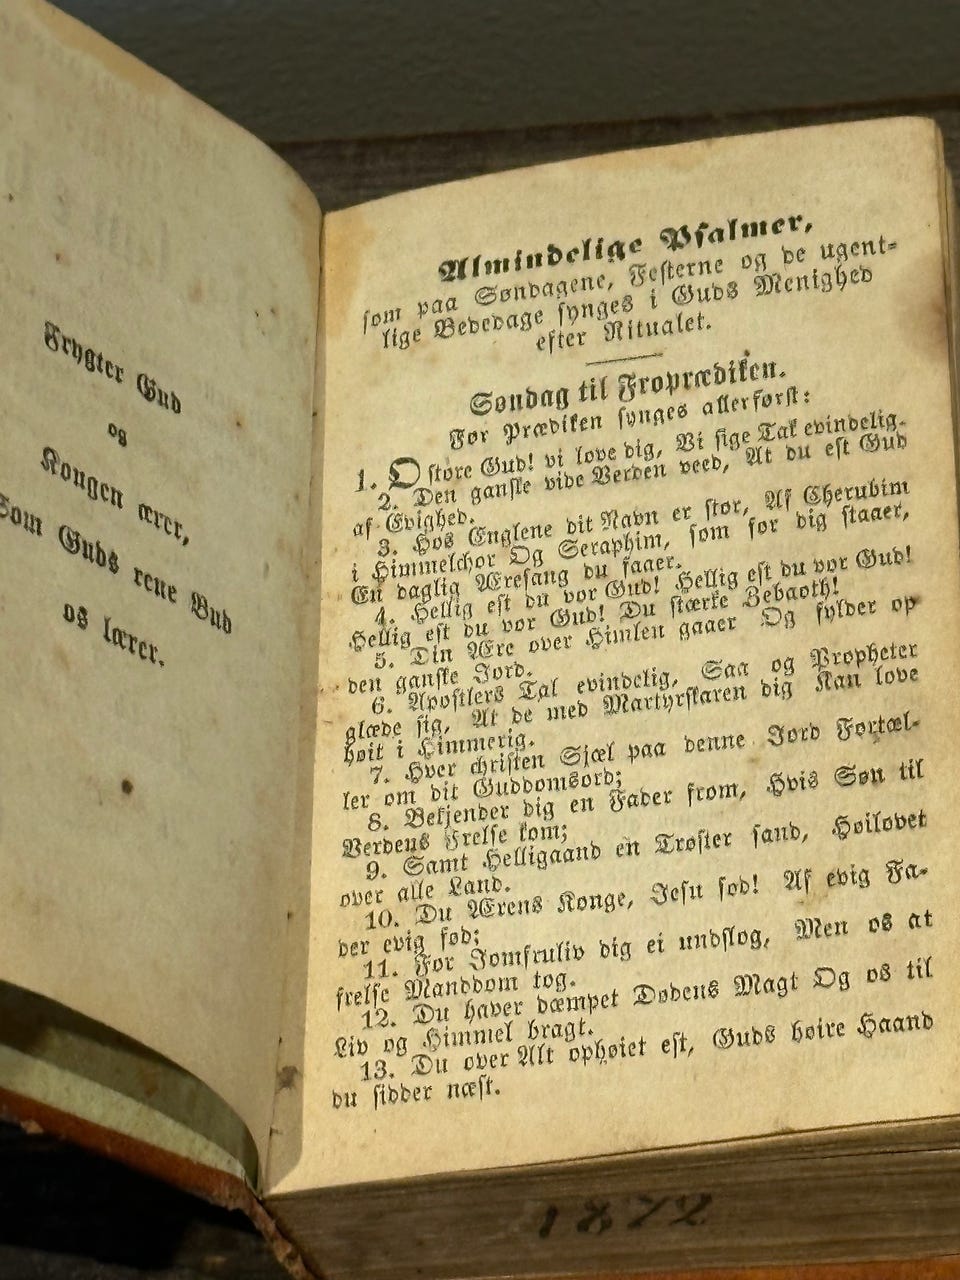 Frygter Gud
og
Kongen ærer,
Som Guds rene Bud
os lærer.
Almindelige Psalmer,
som paa Søndagene, Festerne og de ugent-
lige Bededage synges i Guds Menighed
efter Ritualet.
Søndag til Froprædiken.
Før Prædiken synges allerførst:
1. O store Gud! vi love dig, Vi sige Tak evindelig.
2. Den ganske vide Verden veed, At du est Gud
af Evighed.
3. Hos Englene dit Navn er stor, Af Cherubim
i Himmelchor Og Seraphim, som for dig staaer,
En daglig Æresang du faaer.
4. Hellig est du vor Gud! Hellig est du vor Gud!
Hellig est du vor Gud! Du stærke Zebaoth!
5. Din Ære over Himlen gaaer Og fylder op
den ganske Jord.
6. Apostlers Tal evindelig, Saa og Propheter
glæde sig, At de med Martyrskaren dig Kan love
høit i Himmerig.
7. Hver christen Sjæl paa denne Jord Fortæl-
ler om dit Guddomsord;
8. Bekjender dig en Fader from, Hvis Søn til
Verdens Frelse kom;
9. Samt Helligaand en Trøster sand, Høilovet
over alle Land.
10. Du Ærens Konge, Jesu sød! Af evig Fa-
der evig fød;
11. For Jomfruliv dig ei undslog, Men os at
frelse Manddom tog.
12. Du haver dæmpet Dødens Magt Og os til
Liv og Himmel bragt.
13. Du over Alt ophøiet est, Guds høire Haand
du sidder næst.
1872